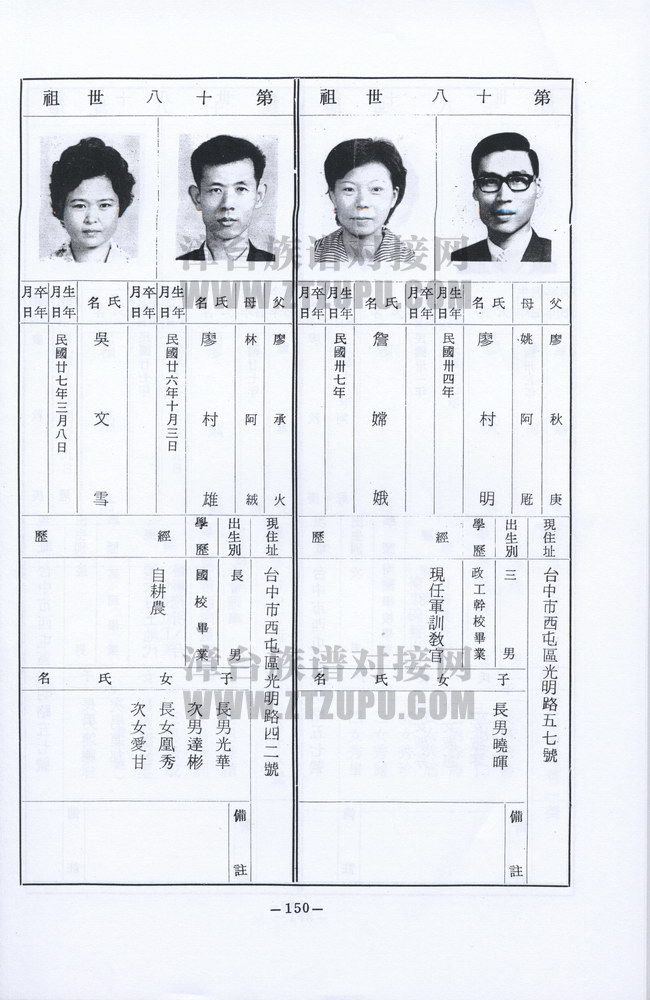 第十八世祖
父 廖秋庚
母 姚阿屘
氏名 廖村明
生年月日 民國卅四年
卒年月日
氏名 詹嫦娥
生年月日 民國卅七年
卒年月日
現住址 台中市西屯區光明路五七號
出生別 三男
學歷 政工幹校畢業
經歷 現任軍訓教官
子女氏名
長男曉暉
備註
第十八世祖
父 廖承火
母 林阿絨
氏名 廖村雄
生年月日 民國廿六年十月三日
卒年月日
氏名 吳文雪
生年月日 民國廿七年三月八日
卒年月日
現住址 台中市西屯區光明路四二號
出生別 長男
學歷 國校畢業
經歷 自耕農
子女氏名
長男光華
次男達彬
長女凰秀
次女愛甘
備註
漳台族谱对接网
WWW.ZTZUPU.COM
漳台族谱对接网
WWW.ZTZUPU.COM
—150—